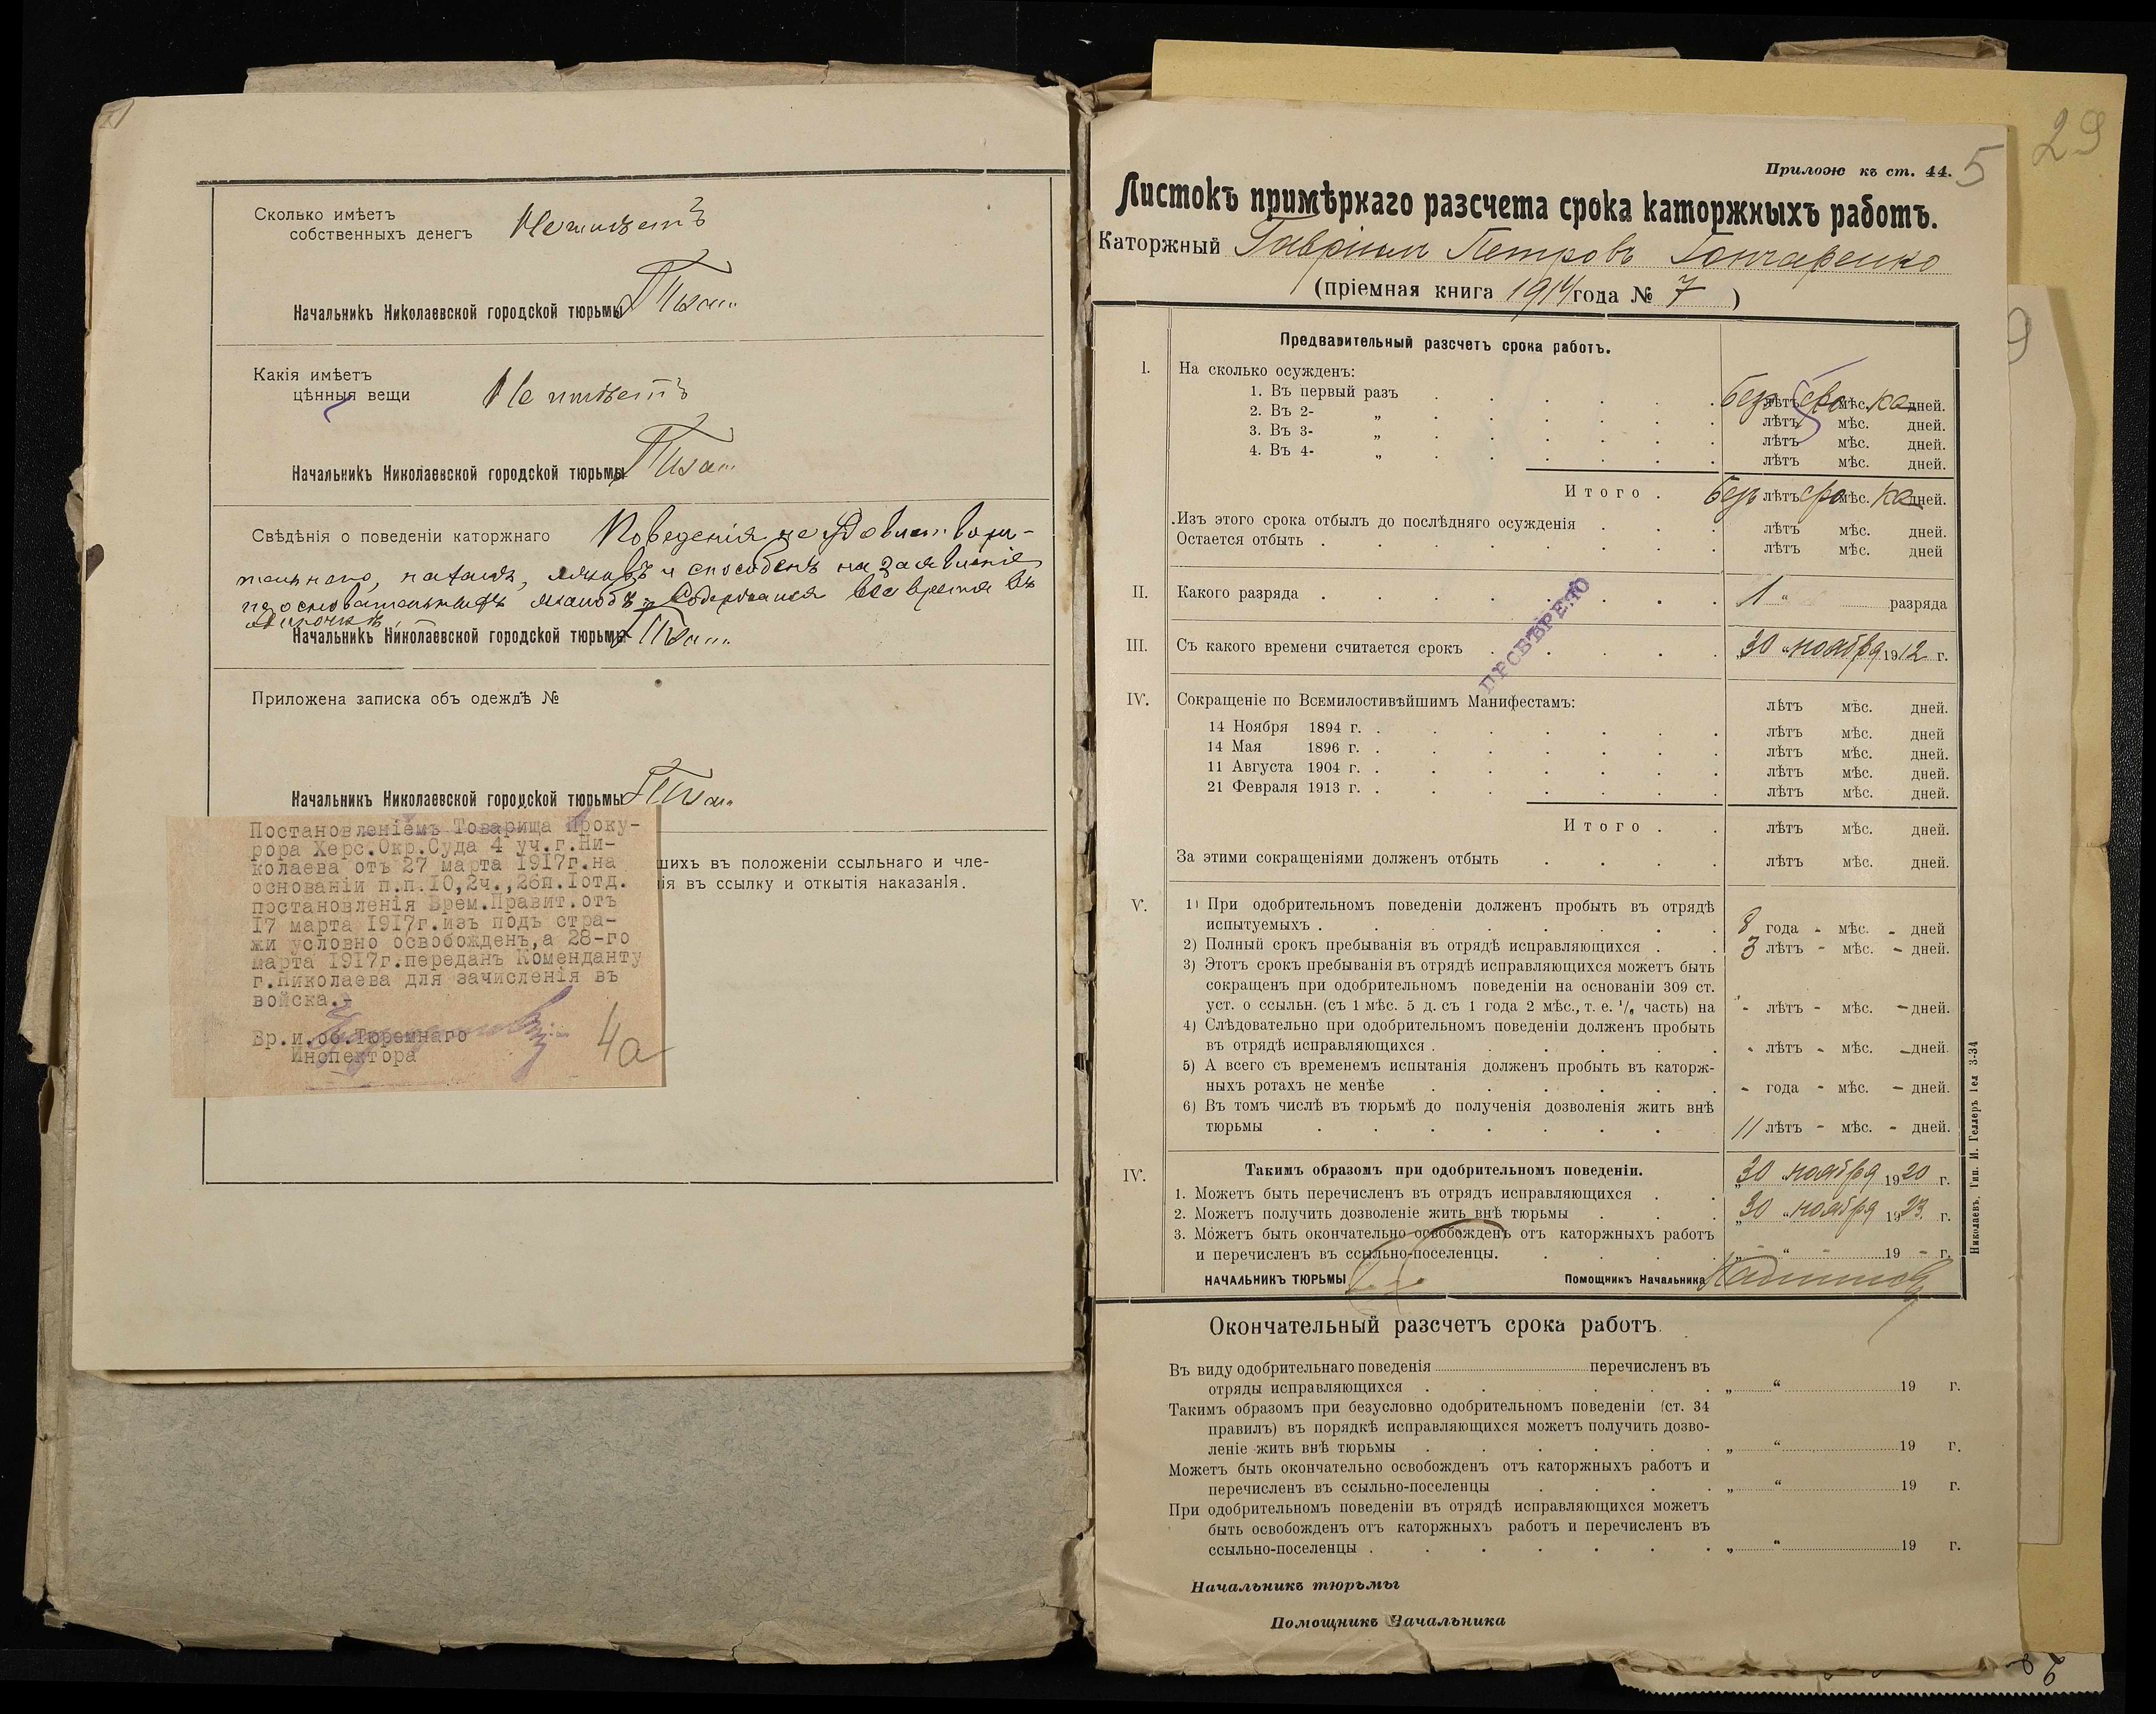 Сколько имѣетъ
собственныхъ денегъ Не имѣетъ
Начальникъ Николаевской городской тюрьмы
Какія имѣетъ
цѣнныя вещи Не имѣетъ
Начальникъ Николаевской городской тюрьмы
Свѣдѣнія о поведеніи каторжнаго Поведенія не удовлетвори-
тельнаго, нахаленъ, и способенъ на заявленіе
неосновательныхъ жалобъ. Содержался все время въ
одиночкѣ.
Начальникъ Николаевской городской тюрьмы
Приложена записка объ одеждѣ №
Начальникъ Николаевской городской тюрьмы
Постановленіемъ Товарища Проку-
рора Херс.Окр.Суда 4 уч.г.Ни-
колаева отъ 27 марта 1917г.на
основаніи п.п.10,2ч.,26п.Iотд.
постановленія Врем.Правит.отъ
17 марта 1917г.изъ подъ стра-
жи условно освобожденъ,а 28-го
марта 1917г.переданъ Коменданту
г.Николаева для зачисленія въ
войска.-
Вр.и.об.Тюремнаго
Инспектора
4а
шихъ въ положеніи ссыльнаго и чле-
ія въ ссылку и открытія наказанія.
29
Прилож къ ст. 44. 5
Листокъ примѣрнаго разсчета срока каторжныхъ работъ.
Каторжный Гавріилъ Петровъ Гончаренко
(пріемная книга 1914 года № 7 )
Предварительный разсчетъ срока работъ.
I. На сколько осужденъ:
1. Въ первый разъ Безъ лѣтъ сро мѣс. ка дней.
2. Въ 2- „ лѣтъ мѣс. дней.
3. Въ 3- „ лѣтъ мѣс. дней.
4. Въ 4- „ лѣтъ мѣс. дней.
Итого . Безъ лѣтъ сро мѣс. ка дней.
Изъ этого срока отбылъ до послѣдняго осужденія лѣтъ мѣс. дней.
Остается отбыть . лѣтъ мѣс. дней
II. Какого разряда . 1 „ разряда
ПРОВѢРЕНО
III. Съ какого времени считается срокъ „30 „ ноября 1912 г.
IV. Сокращеніе по Всемилостивѣйшимъ Манифестамъ: лѣтъ мѣс. дней.
14 Ноября 1894 г. . лѣтъ мѣс. дней
14 Мая 1896 г. . лѣтъ мѣс. дней.
11 Августа 1904 г. . лѣтъ мѣс. дней.
21 Февраля 1913 г. . лѣтъ мѣс. дней.
Итого . лѣтъ мѣс. дней.
За этими сокращеніями долженъ отбыть лѣтъ мѣс. дней.
V. 1) При одобрительномъ поведеніи долженъ пробыть въ отрядѣ
испытуемыхъ . 8 года - мѣс. - дней
2) Полный срокъ пребыванія въ отрядѣ исправляющихся . 3 лѣтъ - мѣс. - дней.
3) Этотъ срокъ пребыванія въ отрядѣ исправляющихся можетъ быть
сокращенъ при одобрительномъ поведеніи на основаніи 309 ст.
уст. о ссыльн. (съ 1 мѣс. 5 д. съ 1 года 2 мѣс., т. е. 1/6 часть) на - лѣтъ - мѣс. - дней.
4) Слѣдовательно при одобрительномъ поведеніи долженъ пробыть
въ отрядѣ исправляющихся . - лѣтъ - мѣс. - дней.
5) А всего съ временемъ испытанія долженъ пробыть въ каторж-
ныхъ ротахъ не менѣе - года - мѣс. - дней.
6) Въ томъ числѣ въ тюрьмѣ до полученія дозволенія жить внѣ
тюрьмы 11 лѣтъ - мѣс. - дней.
IV. Такимъ образомъ при одобрительномъ поведеніи.
1. Можетъ быть перечисленъ въ отрядъ исправляющихся . „30 ноября 1920 г.
2. Можетъ получить дозволеніе жить внѣ тюрьмы „30 „ ноября 1923. г.
3. Можетъ быть окончательно освобожденъ отъ каторжныхъ работъ
и перечисленъ въ ссыльно-поселенцы. „ - “ - 19 - г.
НАЧАЛЬНИКЪ ТЮРЬМЫ Помощникъ Начальника
Николаевъ. Тип. И. Геллеръ Тел 3-34
Окончательный разсчетъ срока работъ.
Въ виду одобрительнаго поведенія перечисленъ въ
отряды исправляющихся . „ “ 19 г.
Такимъ образомъ при безусловно одобрительномъ поведеніи (ст. 34
правилъ) въ порядкѣ исправляющихся можетъ получить дозво-
леніе жить внѣ тюрьмы „ “ 19 г.
Можетъ быть окончательно освобожденъ отъ каторжныхъ работъ и
перечисленъ въ ссыльно-поселенцы „ “ 19 г.
При одобрительномъ поведеніи въ отрядѣ исправляющихся можетъ
быть освобожденъ отъ каторжныхъ работъ и перечисленъ въ
ссыльно-поселенцы . „ “ 19 г.
Начальникъ тюрьмы
Помощникъ Начальника